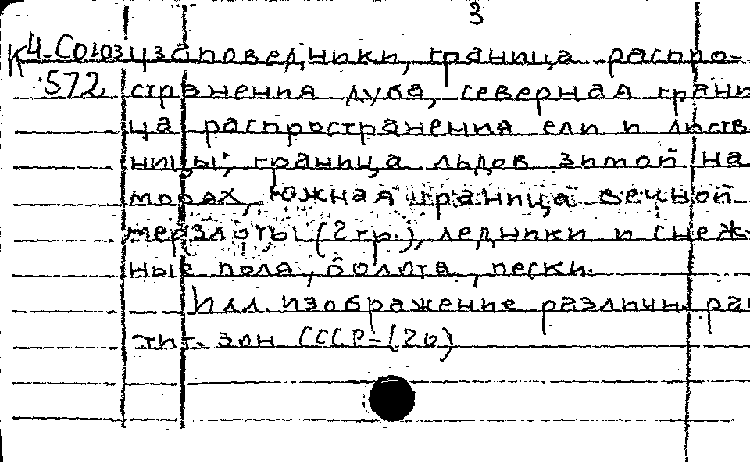 3
К4-Союз заповедники, граница распро-
572 странения дуба, северная грани
ца распространения ели и листв
ницы; граница льдов зимой на
морях, южная граница вечной
мерзлоты (2 гр.), ледники и снеж-
ные поля, болота, пески.
Илл. изображение различн. рас
тит. зон СССР-(20)